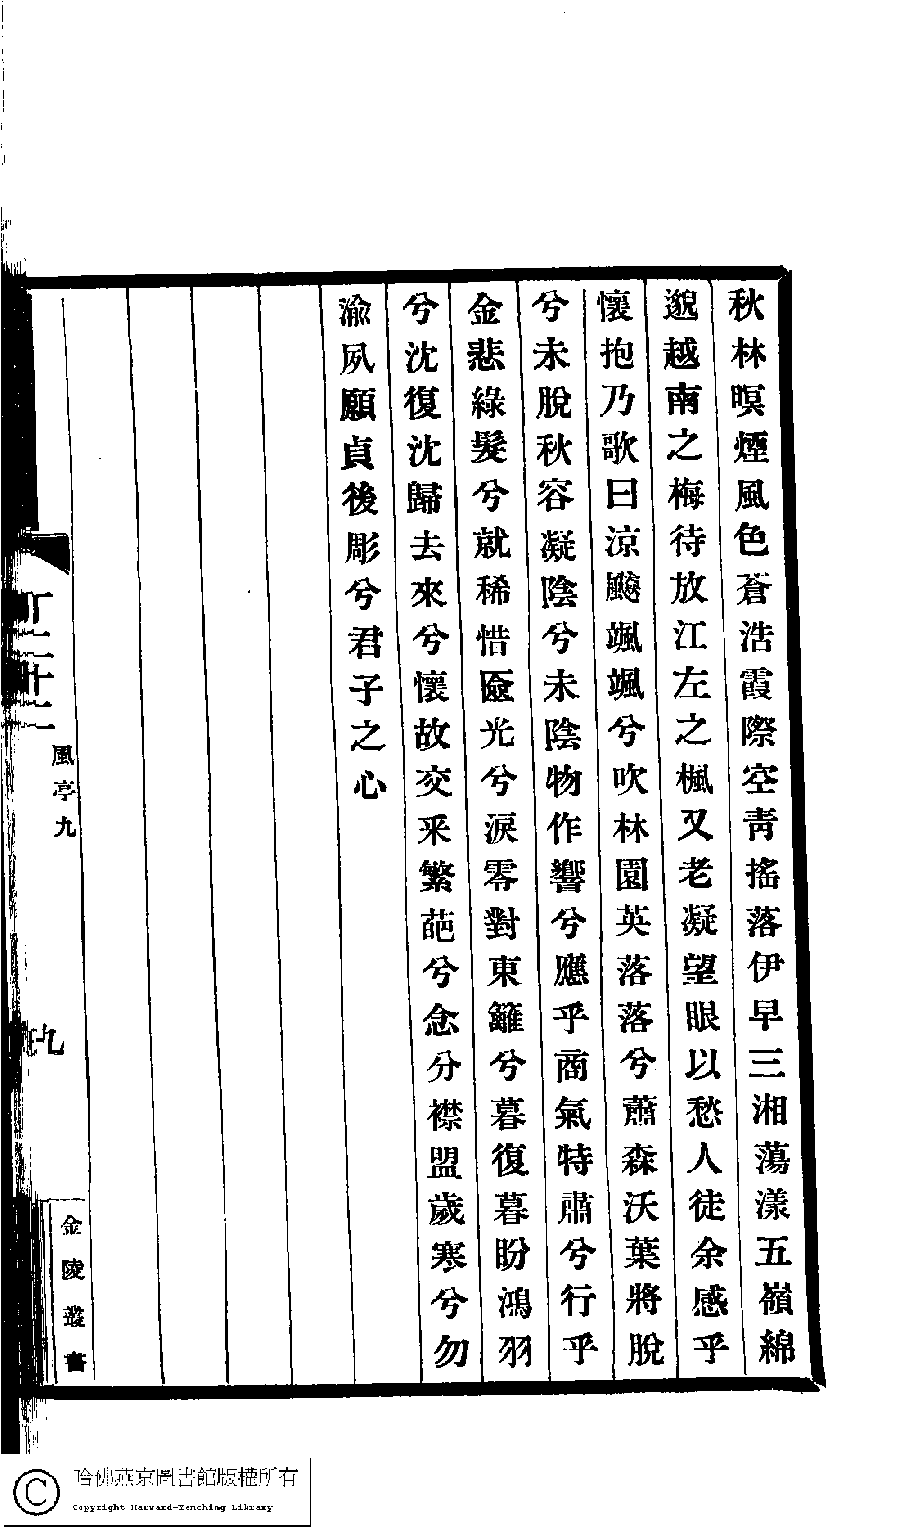 秋林暝煙風色蒼浩霞際空青搖落伊早三湘蕩漾五嶺綿
邈越南之梅待放江左之楓又老凝望眼以愁人徒余感乎
懷抱乃歌曰涼飈颯颯兮吹林園英落落兮蕭森沃葉將脫
兮未脫秋容凝陰兮未陰物作響兮應乎商氣特肅兮行乎
金悲綠髮兮就稀惜匳光兮淚零對東籬兮暮復暮盼鴻羽
兮沈復沈歸去來兮懷故交采繁葩兮念分襟盟歲寒兮勿
渝夙願貞後彫兮君子之心
風亭九
九
金陵叢書
哈佛燕京圖書館版權所有
Copyright Harvard-Yenching Library